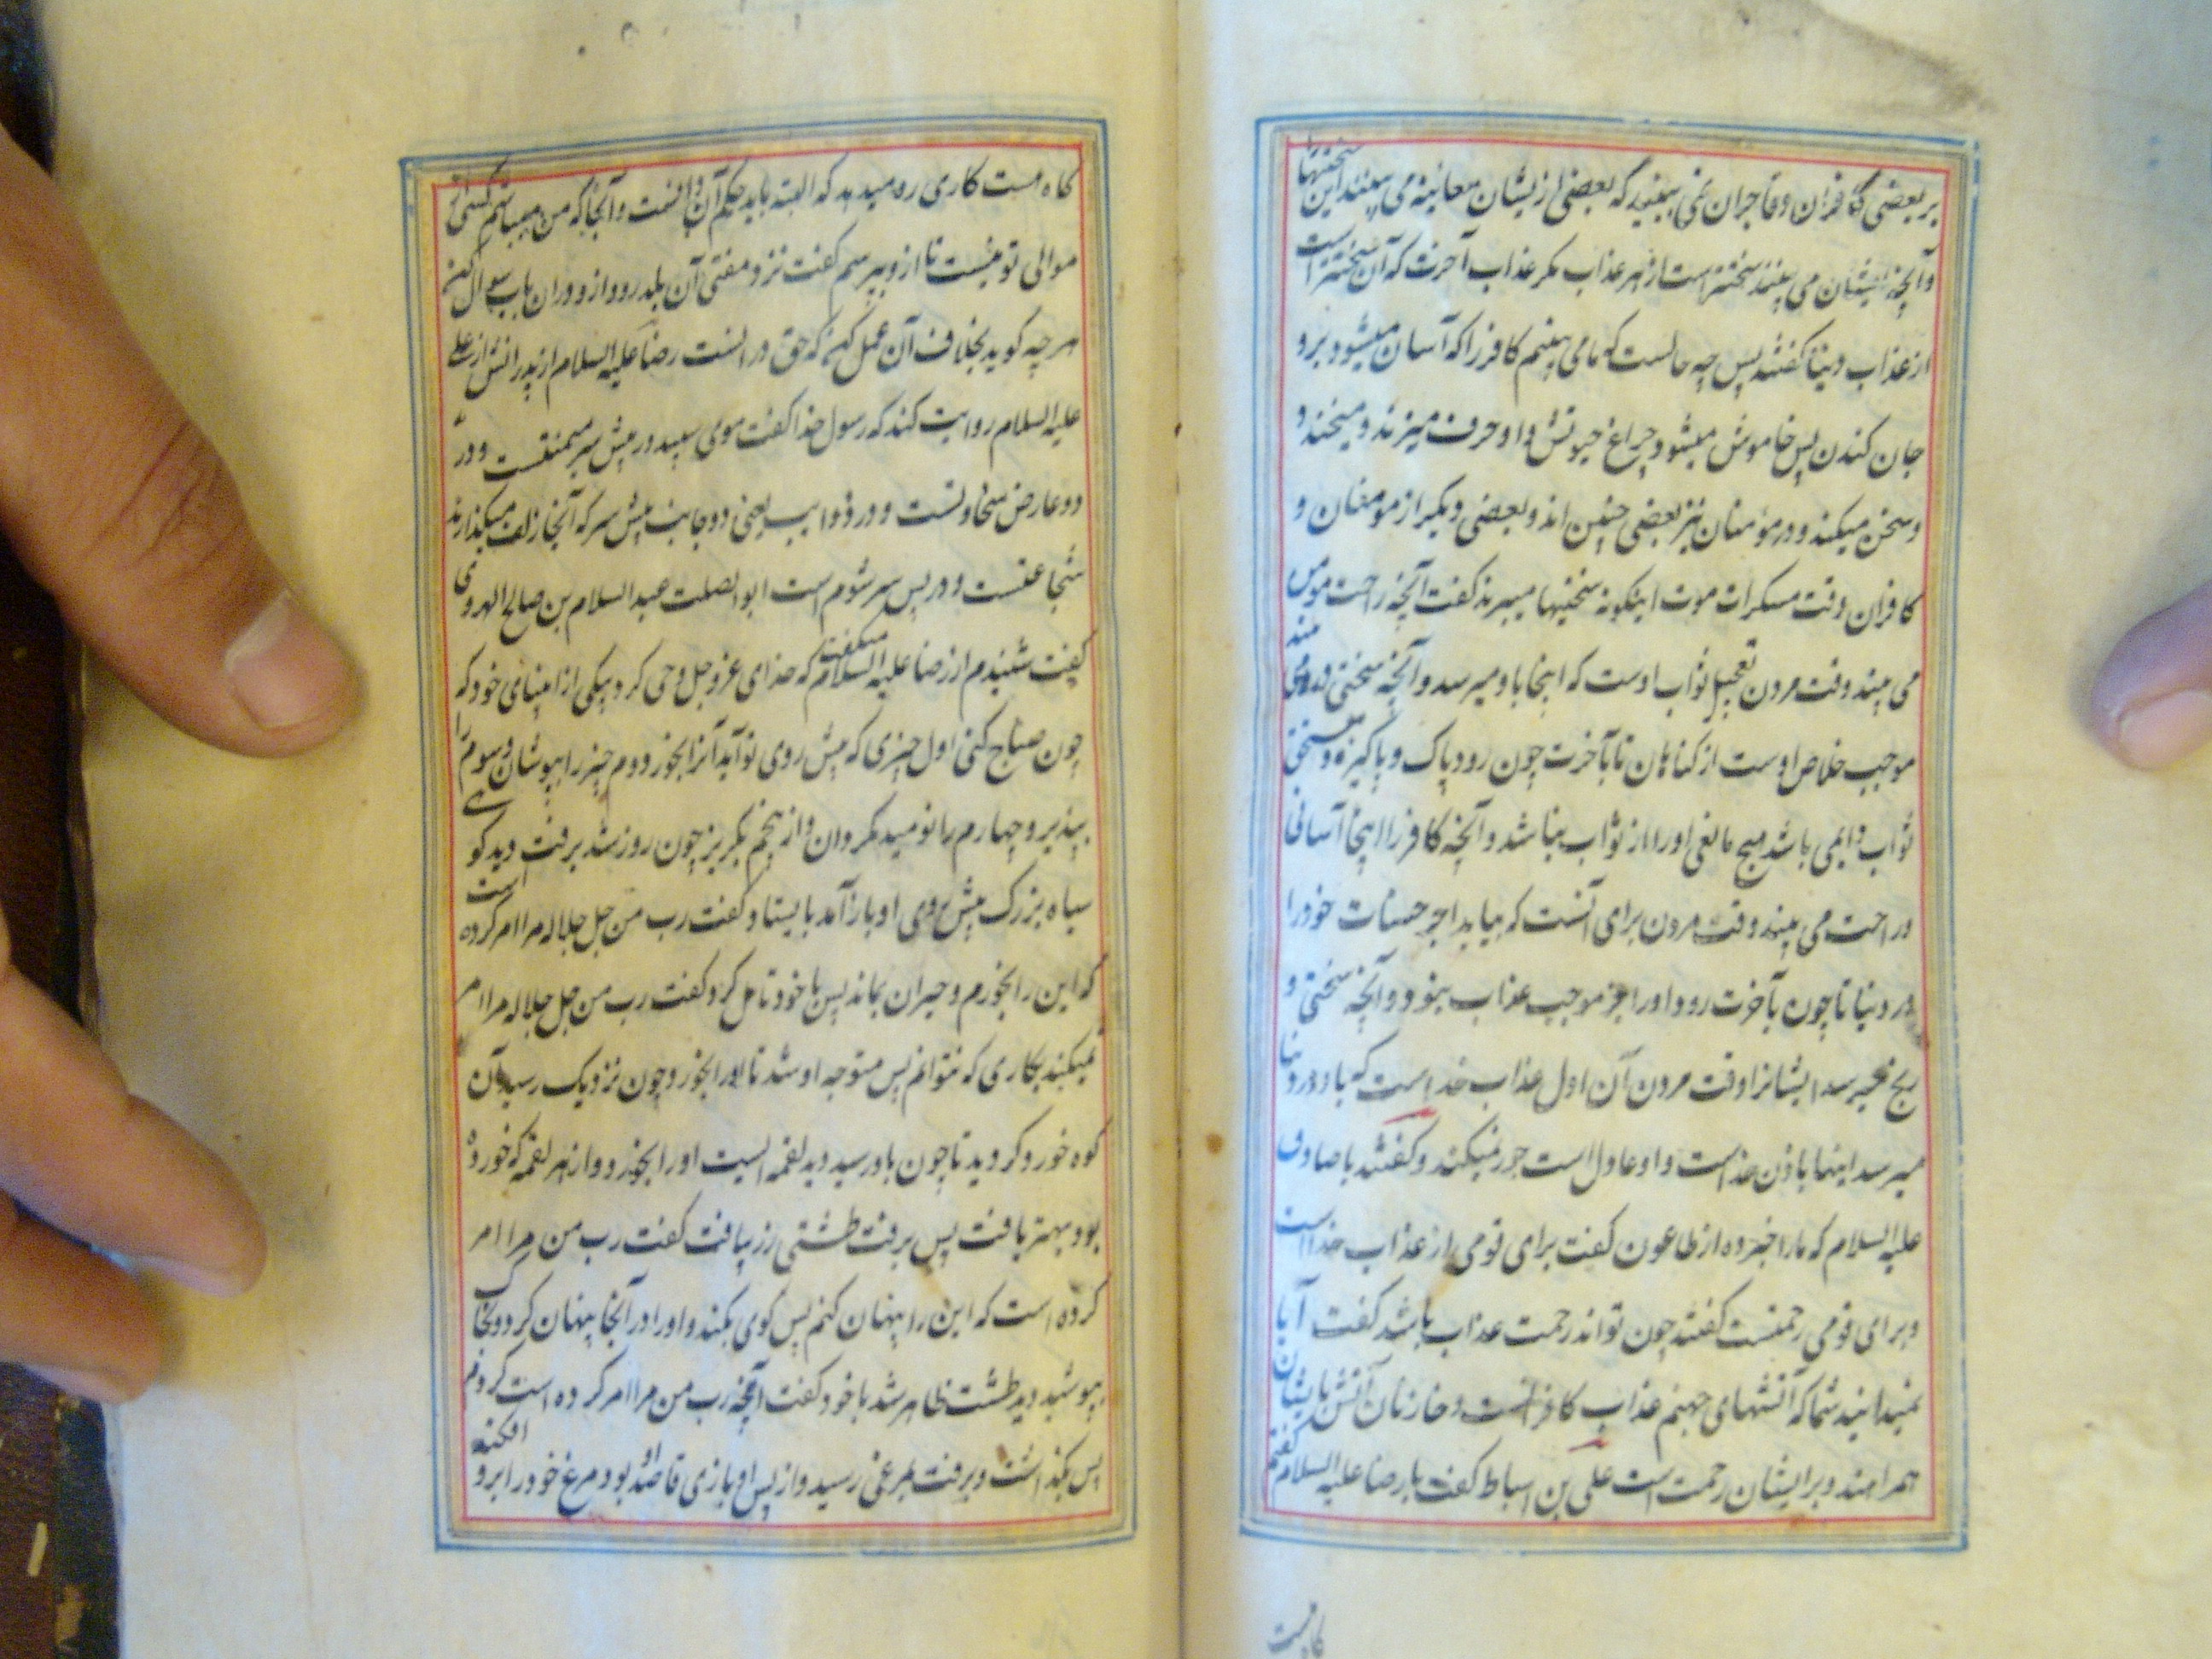 بر بعضی کافران و فاجران نمی بینید که بعضی از یشان معاینه می بینند این سختیها
و آنچه ایشان می بینند سختتر است از هر عذاب مکر عذاب آخرت که آن سختتر است
از عذاب دنیا کفتند پس چه حالست که ما می بینم کافر را که آسان میشود برو
جان کندن پس خاموش میشود چراغ حیوتش و او حرف میزند و میخندد
و سخن میکند و در مؤمنان نیز بعضی چنین اند و بعضی دیکر از مومنان و
کافران وقت سکرات موت اینکونه سختیها میبرند کفت آنچه راحت مومن
می بیند وقت مردن تعجیل ثواب اوست که اینجا باو میرسد و آنچه سختی
موجب خلاص اوست از کناهان تا بآخرت چون رود پاک و پاکیزه و مستحق
ثواب دایمی باشد هیچ مانعی اورا از ثواب نباشد و آنچه کافر را اینجا آسانی
و راحت می بیند وقت مردن برای آنست که بیابد اجر حسنات خودرا
در دنیا تا چون بآخرت رود اورا جز موجب عذاب نبود و آنچه سختی و
رنج میرسد ایشانرا وقت مردن آن اول عذاب خداست که باو در دنیا
میرسد اینها باذن خداست و او عادل است جور نمیکند و کفتند با صادق
علیه السلام که مارا خبر ده از طاعون کفت برای قومی از عذاب خدا است
و برای قومی رحمتست کفتند چون تواند رحمت عذاب باشد کفت آیا
نمیدانید شما که آتشهای جهنم عذاب کافرانست و خازنان آتش با ایشان
همراهند و بر ایشان رحمت است علی بن اسباط کفت با رضا علیه السلام کفتم
کاه هست
کاه هست کاری ره میدهد که البته باید حکم آن دانست و آنجا که من میباشم کسی از
موالی تو نیست تا از و بپرسم کفت نزد مفتی آن بلد رو و ازو در ان باب سوال کن
هر چه کوید بخلاف آن عمل کن که حق در انست رضا علیه السلام از پدرانش از علی
علیه السلام روایت کند که رسول خدا کفت موی سپید در پیش سر یمنست و در
دو عارض سخاوتست و در ذوایب یعنی دو جانب پیش سر که آنجا زلف میکذارند
شجاعتست و در پس سر شوم است ابو الصلت عبد السلام بن صالح الهروی
کفت شنیدم از رضا علیه السلام میکفت که خدای عز و جل وحی کرد بیکی از انبیای خود که
چون صباح کنی اول چیزی که پیش روی تو آید آنرا بخور و دوم چیز را بپوشان و سوم را
بپذیر و چهارم را نومید مکردان و از پنجم بکریز چون روز شد برفت دید کوهی
سیاه بزرک پیش روی او باز آمد بایستاد و کفت رب من جل جلاله مرا امر کرده است
که این را بخورم و حیران بماند پس با خود تامل کرد و کفت رب من جل جلاله مرا امر
نمیکند بکاری که نتوانم پس متوجه او شد تا اورا بخورد و چون نزدیک رسید آن
کوه خورد کردید تا چون باو رسید دید لقمه ایست اورا بخورد و از هر لقمه که خورده
بود بهتر یافت پس برفت طشتی زر یافت کفت رب من مرا امر
کرده است که این را پنهان کنم پس کوی بکند و اورا در آنجا پنهان کرد و بخاک
بپوشید دید طشت ظاهر شد با خود کفت آنچه رب من مرا امر کرده است کردم
پس بکذاشت و برفت بمرغی رسید و از پس او بازی قاصد او بود مرغ خودرا برو افکند